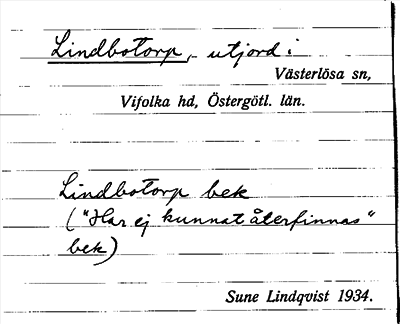 Lindbotorp, utjord i
Västerlösa sn,
Vifolka hd, Östergötl. län.
Lindbotorp bek
("Har ej kunnat återfinnas"
bek)
Sune Lindqvist 1934.